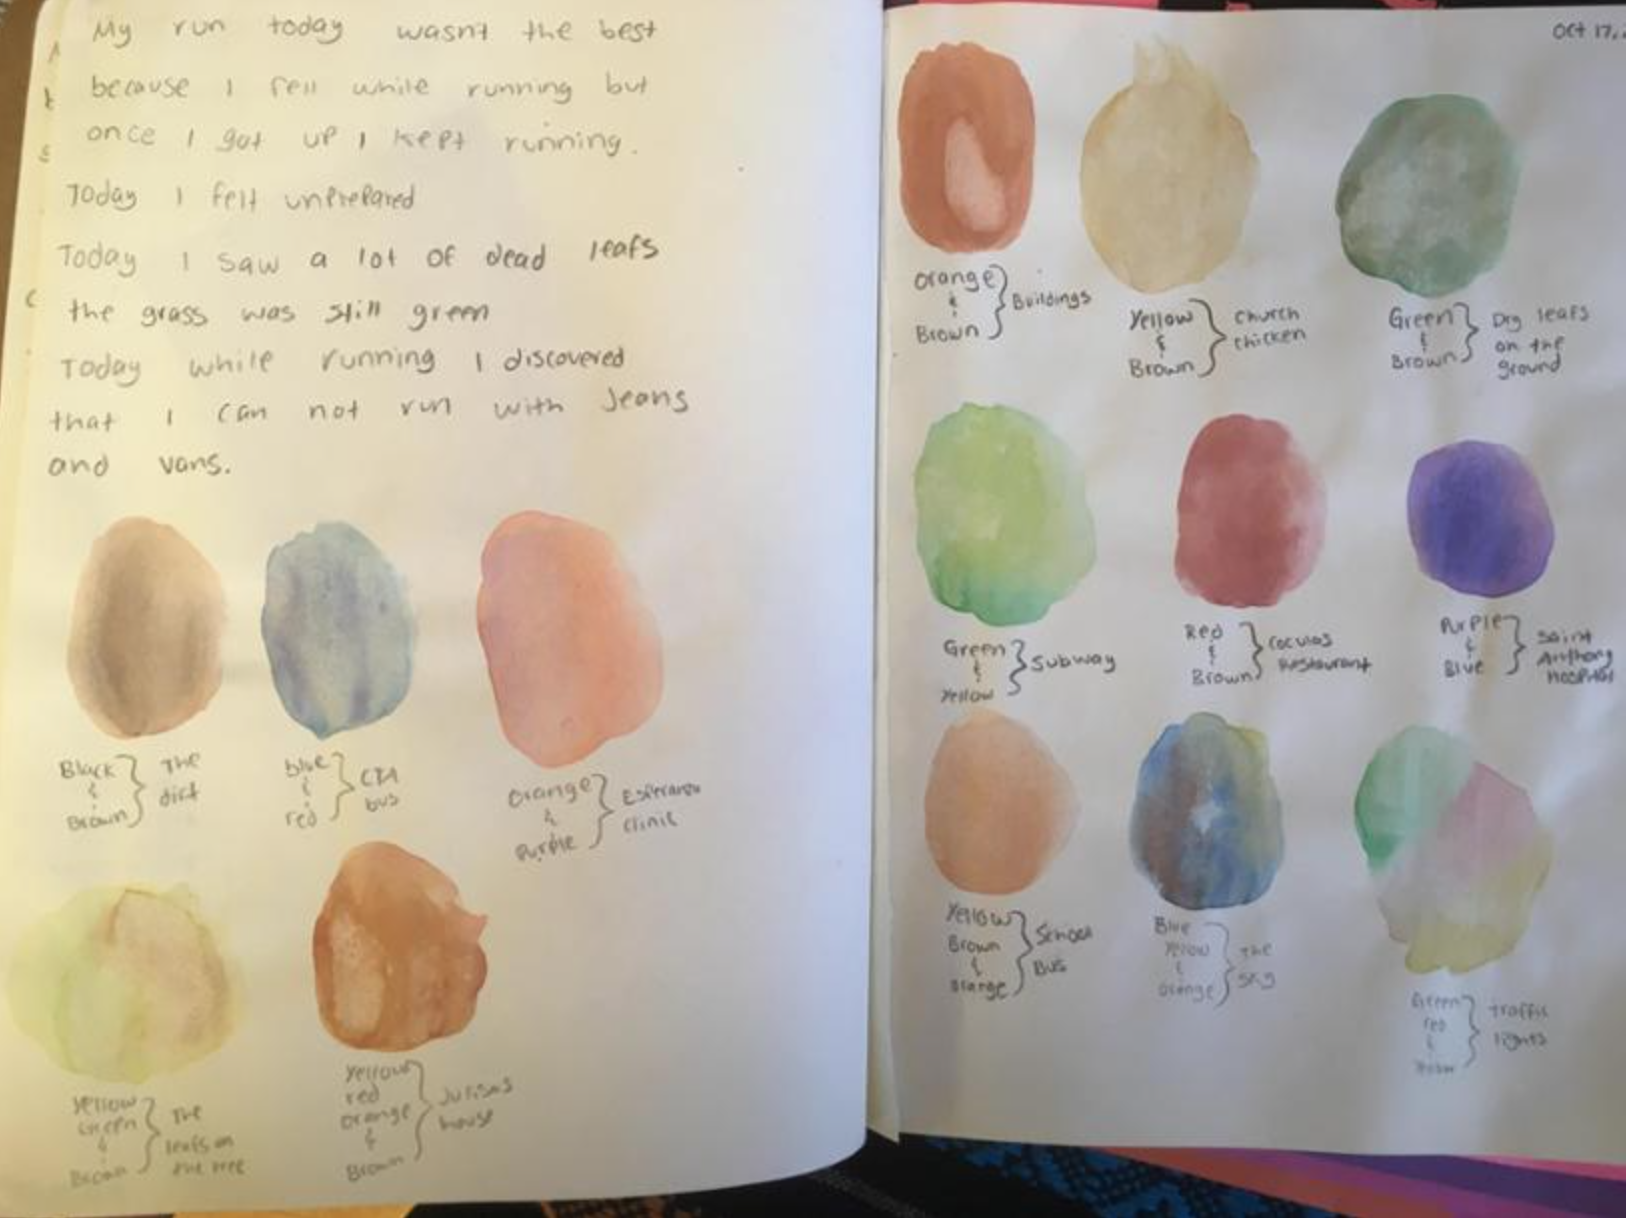 My run today wasnt the best
because I fell while running but
once I got up I kept running.
Today I felt unprepared
Today I saw a lot of dead leafs
the grass was still green
Today while running I discovered
that I can not run with Jeans
and vans.
Black & Brown } The dirt
blue & red } CTA bus
orange & Purple } Esperanza clinic
Yellow Green & Brown } The leafs on the tree
Yellow red orange & Brown } house
Oct 17,
Orange & Brown } Buildings
Yellow & Brown } Church chicken
Green & Brown } Dry leafs on the ground
Green & Yellow } Subway
Red & Brown } Coculas Restaurant
Purple & Blue } Saint Anthony Hospital
Yellow Brown & Orange } School Bus
Blue Yellow & Orange } The sky
Green red & } traffic lights